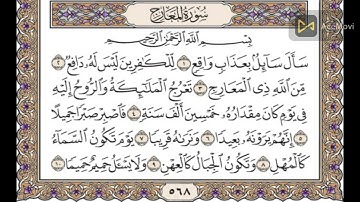 سُورَةُ المَعَارِجِ
AceMovi
بِسْمِ اللَّهِ الرَّحْمَٰنِ الرَّحِيمِ
سَأَلَ سَآئِلٌۢ بِعَذَابٍ وَاقِعٍ ١ لِّلْكَٰفِرِينَ لَيْسَ لَهُۥ دَافِعٌ ٢
مِّنَ ٱللَّهِ ذِى ٱلْمَعَارِجِ ٣ تَعْرُجُ ٱلْمَلَٰٓئِكَةُ وَٱلرُّوحُ إِلَيْهِ
فِى يَوْمٍ كَانَ مِقْدَارُهُۥ خَمْسِينَ أَلْفَ سَنَةٍ ٤ فَٱصْبِرْ صَبْرًا جَمِيلًا
٥ إِنَّهُمْ يَرَوْنَهُۥ بَعِيدًا ٦ وَنَرَىٰهُ قَرِيبًا ٧ يَوْمَ تَكُونُ ٱلسَّمَآءُ
كَٱلْمُهْلِ ٨ وَتَكُونُ ٱلْجِبَالُ كَٱلْعِهْنِ ٩ وَلَا يَسْـَٔلُ حَمِيمٌ حَمِيمًا ١٠
٥٦٨